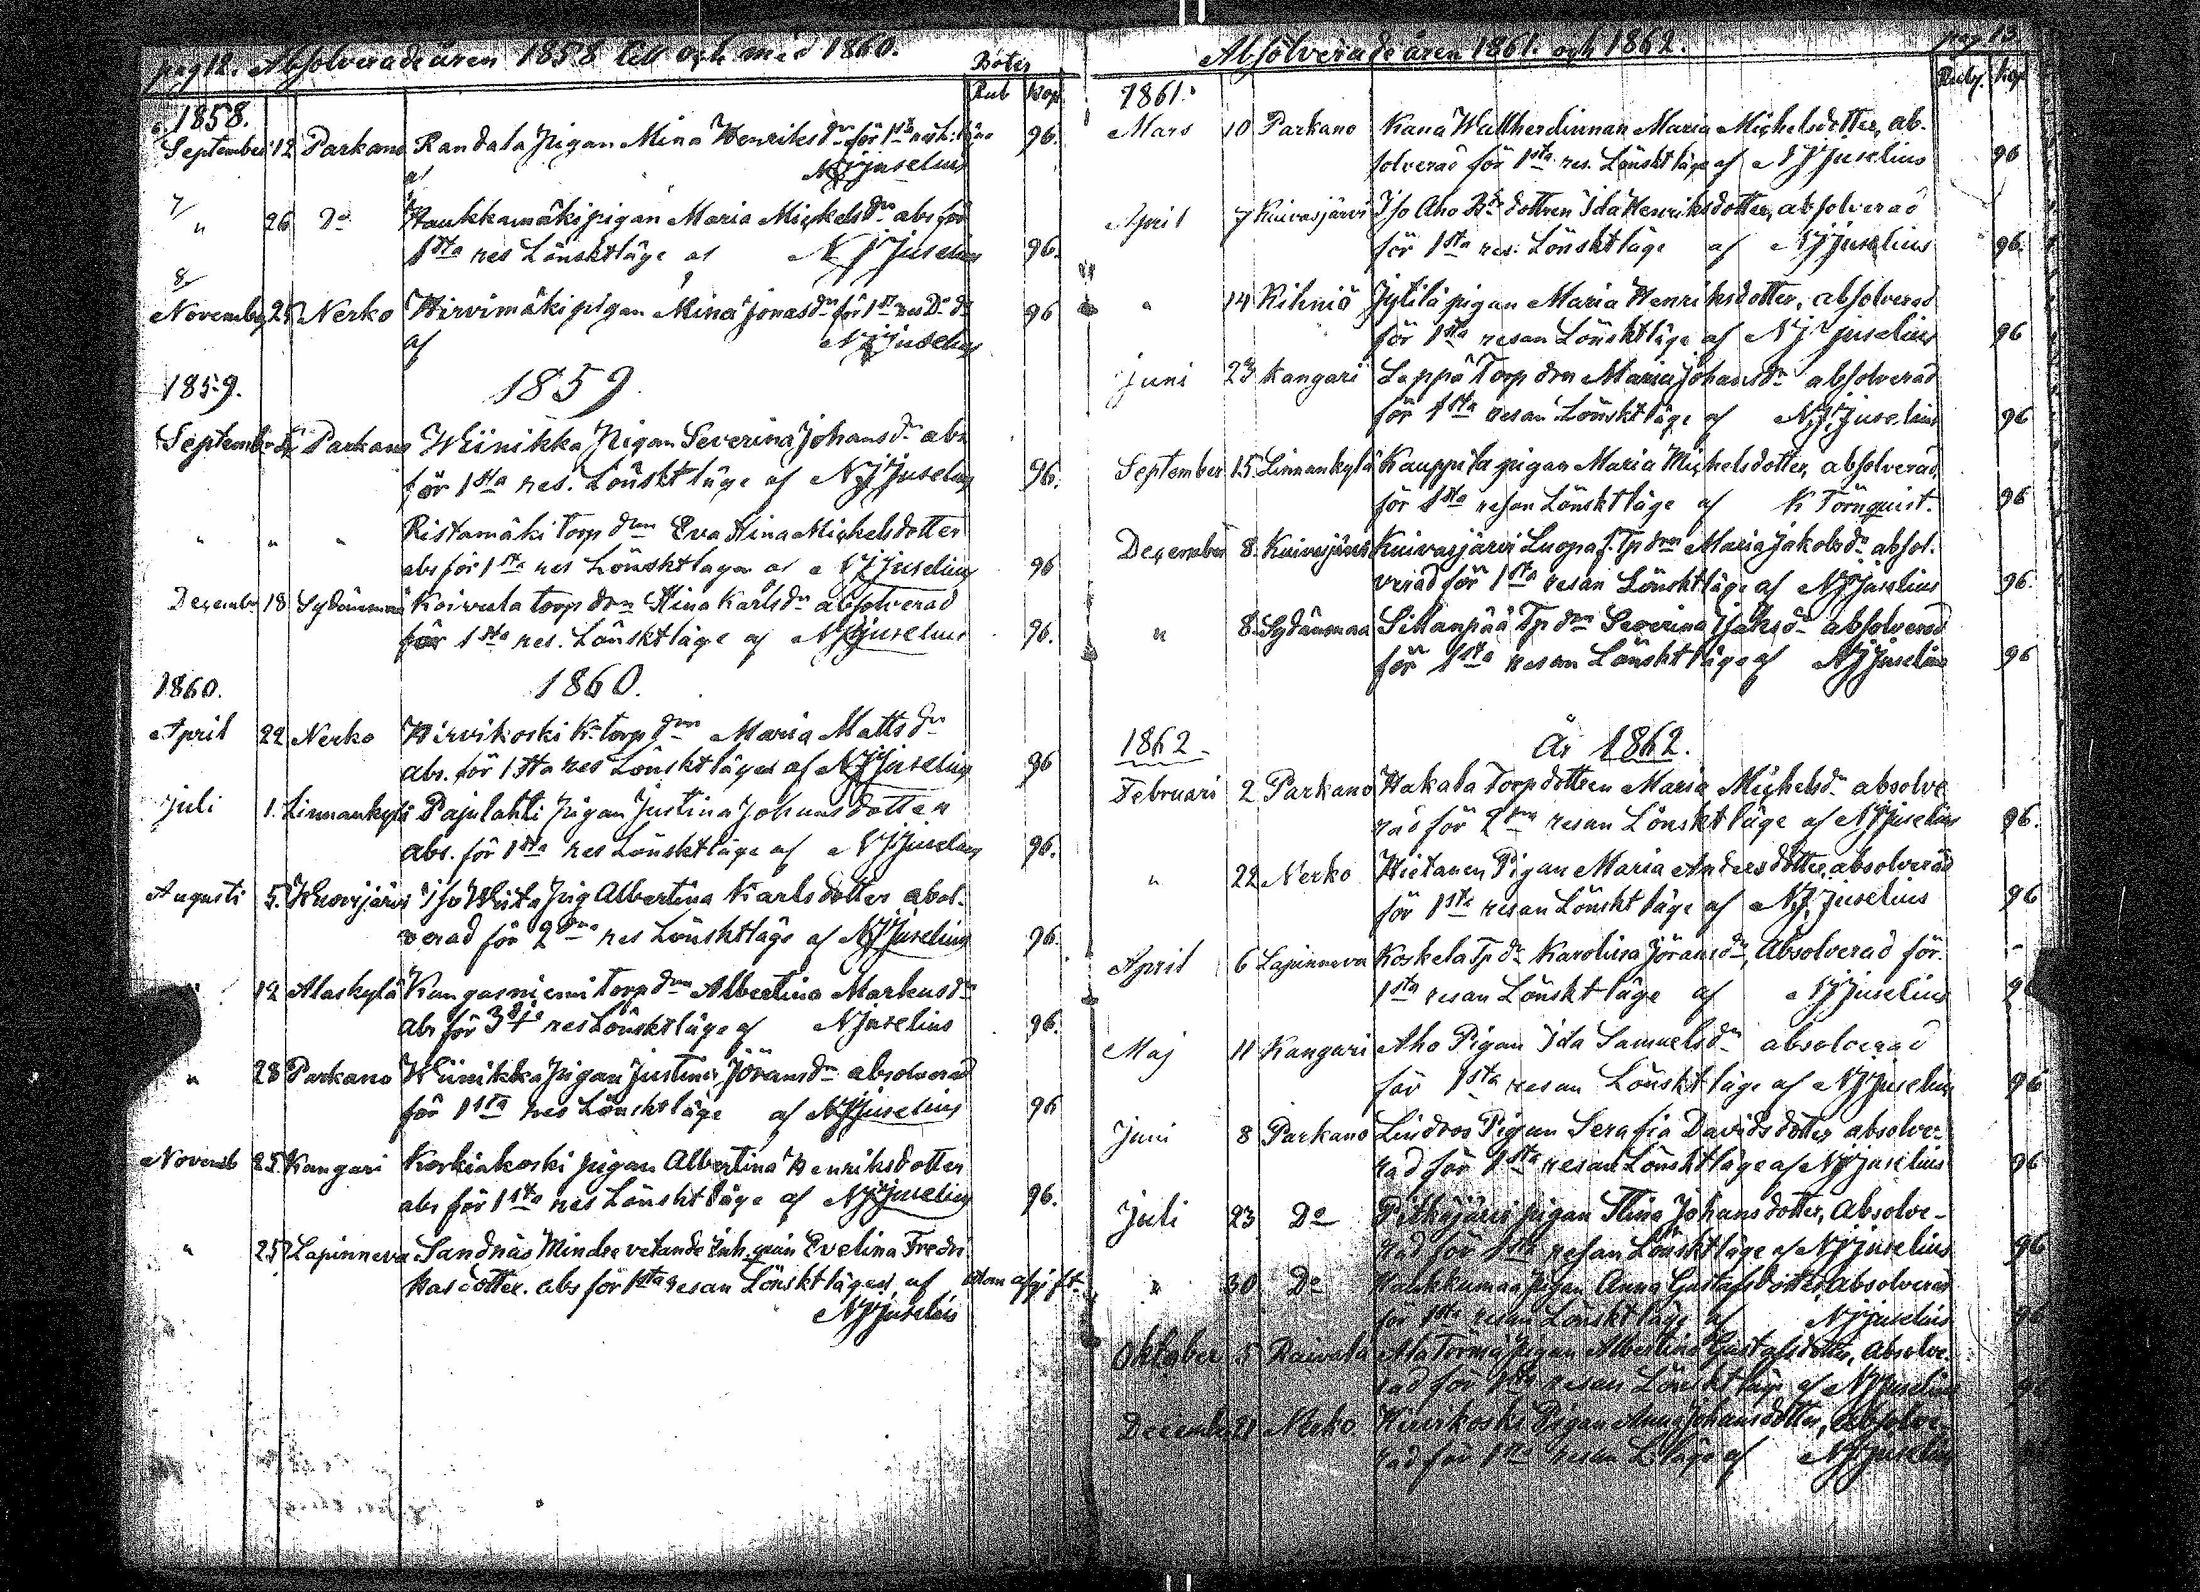 pag 12. Absolverade åren 1858 till och med 1860.
Böter
Rub Kop
1858.
September 12 Parkano Randala Pigan Mina Henriksdr för 1sta
af NJJuselius 96.
7/
" 26 Do Haukkamäki pigan Maria Mickelsdr abs för
1sta res Lönsktläge af NJJuselius 96.
8/
November 25 Nerko Hirvimäki pigan Mina Jonasdr för 1sta res Do do 96
af NJJuselius
1859. 1859.
Septemb Parkano Wiinikka Pigan Severina Johansdr abs
för 1sta res. Lönsktläge af NJJuselius 96.
" " " Ristamäki Torp drn Eva Stina Mickelsdotter
abs för 1sta res Lönsktläge af NJJuselius 96
Decembr 18 Sydänmaa Koivula torp drn Stina Karlsdr absolverad
för 1sta res. Lönsktläge af NJJuselius 96.
1860. 1860.
April 22 Nerko Hirvikoski Kr torp drn Maria Matts dr
abs. för 1sta res Lönsktläge af NJJuselius 96
Juli 1. Linnankylä Pajulahti Pigan Justina Johansdotter
abs. för 1sta res Lönsktläge af NJJuselius 96.
Augusti 5. Iso Wiita Pig Albertina Karlsdotter absol-
verad för 2dra res Lönsktläge af NJJuselius 96.
" 12 Alaskylä Kangasniemi torp drn Albertina Markusdr
abs för 3dje res Lönsktläge af NJuselius 96.
" 28 Parkano Wiinikka Pigan Justina Göransdr absolverad
för 1sta res Lönsktläge af NJJuselius 96
Novemb 25. Kangari Korkiakoski pigan Albertina Henriksdotter
abs för 1sta res Lönsktläge af NJJuselius 96.
" 25 Lapinneva Sandnäs Mindre vetande Inh. pigan Evelina Fredri-
kasdotter. abs för 1sta resan Lönsktläge, af utom afgift.
NJJuselius
Absolverade åren 1861. och 1862. pag 13
Ruby. Kop
1861.
Mars 10 Parkano Kana Wallherdinnan Maria Mickelsdotter, ab-
solverad för 1sta res. Lönsktläge af NJJuselius 96
April 7 Kuivasjärvi Iso Aho Bde dottren Ida Henriksdotter, absolverad
för 1sta res. Lönsktläge af NJJuselius 96.
" 14 Kihniö Jytilä pigan Maria Henriksdotter, absolverad
för 1sta resan Lönsktläge af NJJuselius 96
Juni 23 Kangari Leppä Torp drn Maria Johansdr absolverad
för 1sta resan Lönsktläge af NJJuselius 96
September 15 Linnankylä Kauppila pigan Maria Mickelsdotter, absolverad,
för 1sta resan Lönsktläge af K Törnquist. 96
December 8. Kuivasjärvi Kuivasjärvi Luopa Tp drn Maria Jakobsdr absol-
verad för 1sta resan Lönsktläge af NJJuselius 96.
" 8 Sydänmaa Sillanpää Tp drn Severina Isaksdr absolverad
för 1sta resan Lönsktläge af NJJuselius 96
1862 År 1862.
Februari 2 Parkano Hakala Torpdottren Maria Mickelsdr absolve-
rad för 2dra resan Lönsktläge af NJJuselius 96.
" 22 Nerko Hietanen Pigan Maria Andersdotter, absolverad
för 1sta resan Lönsktläge af NJJuselius 96
April 6 Lapinneva Koskela Tp dr Karolina Göransdr, Absolverad för
1sta resan Lönsktläge af NJJuselius
Maj 11 Kangari Aho Pigan Ida Samuelsdr absolverad
för 1sta resan Lönsktläge af NJJuselius 96
Juni 8 Parkano Lindroos Pigan Serafia Davidsdotter absolve-
rad för 1sta resan Lönsktläge af NJJuselius 96
Juli 23 Do Pitkäjärvi pigan Stina Johansdotter, Absolve-
rad för 1sta resan Lönsktläge af NJJuselius 96
" 30 Do pigan Anna Gustafsdotter, Absolverad
för 1sta resan Lönsktläge af NJJuselius 96
Oktober 5 Raivala Ala Törmä Pigan Albertina Gustafsdotter, Absolve-
rad för 1sta resan Lönsktläge af NJJuselius
December 21 Nerko Hirvikoski Pigan Anna Johansdotter, Absolve-
rad för 1sta resan L. läge af NJJuselius